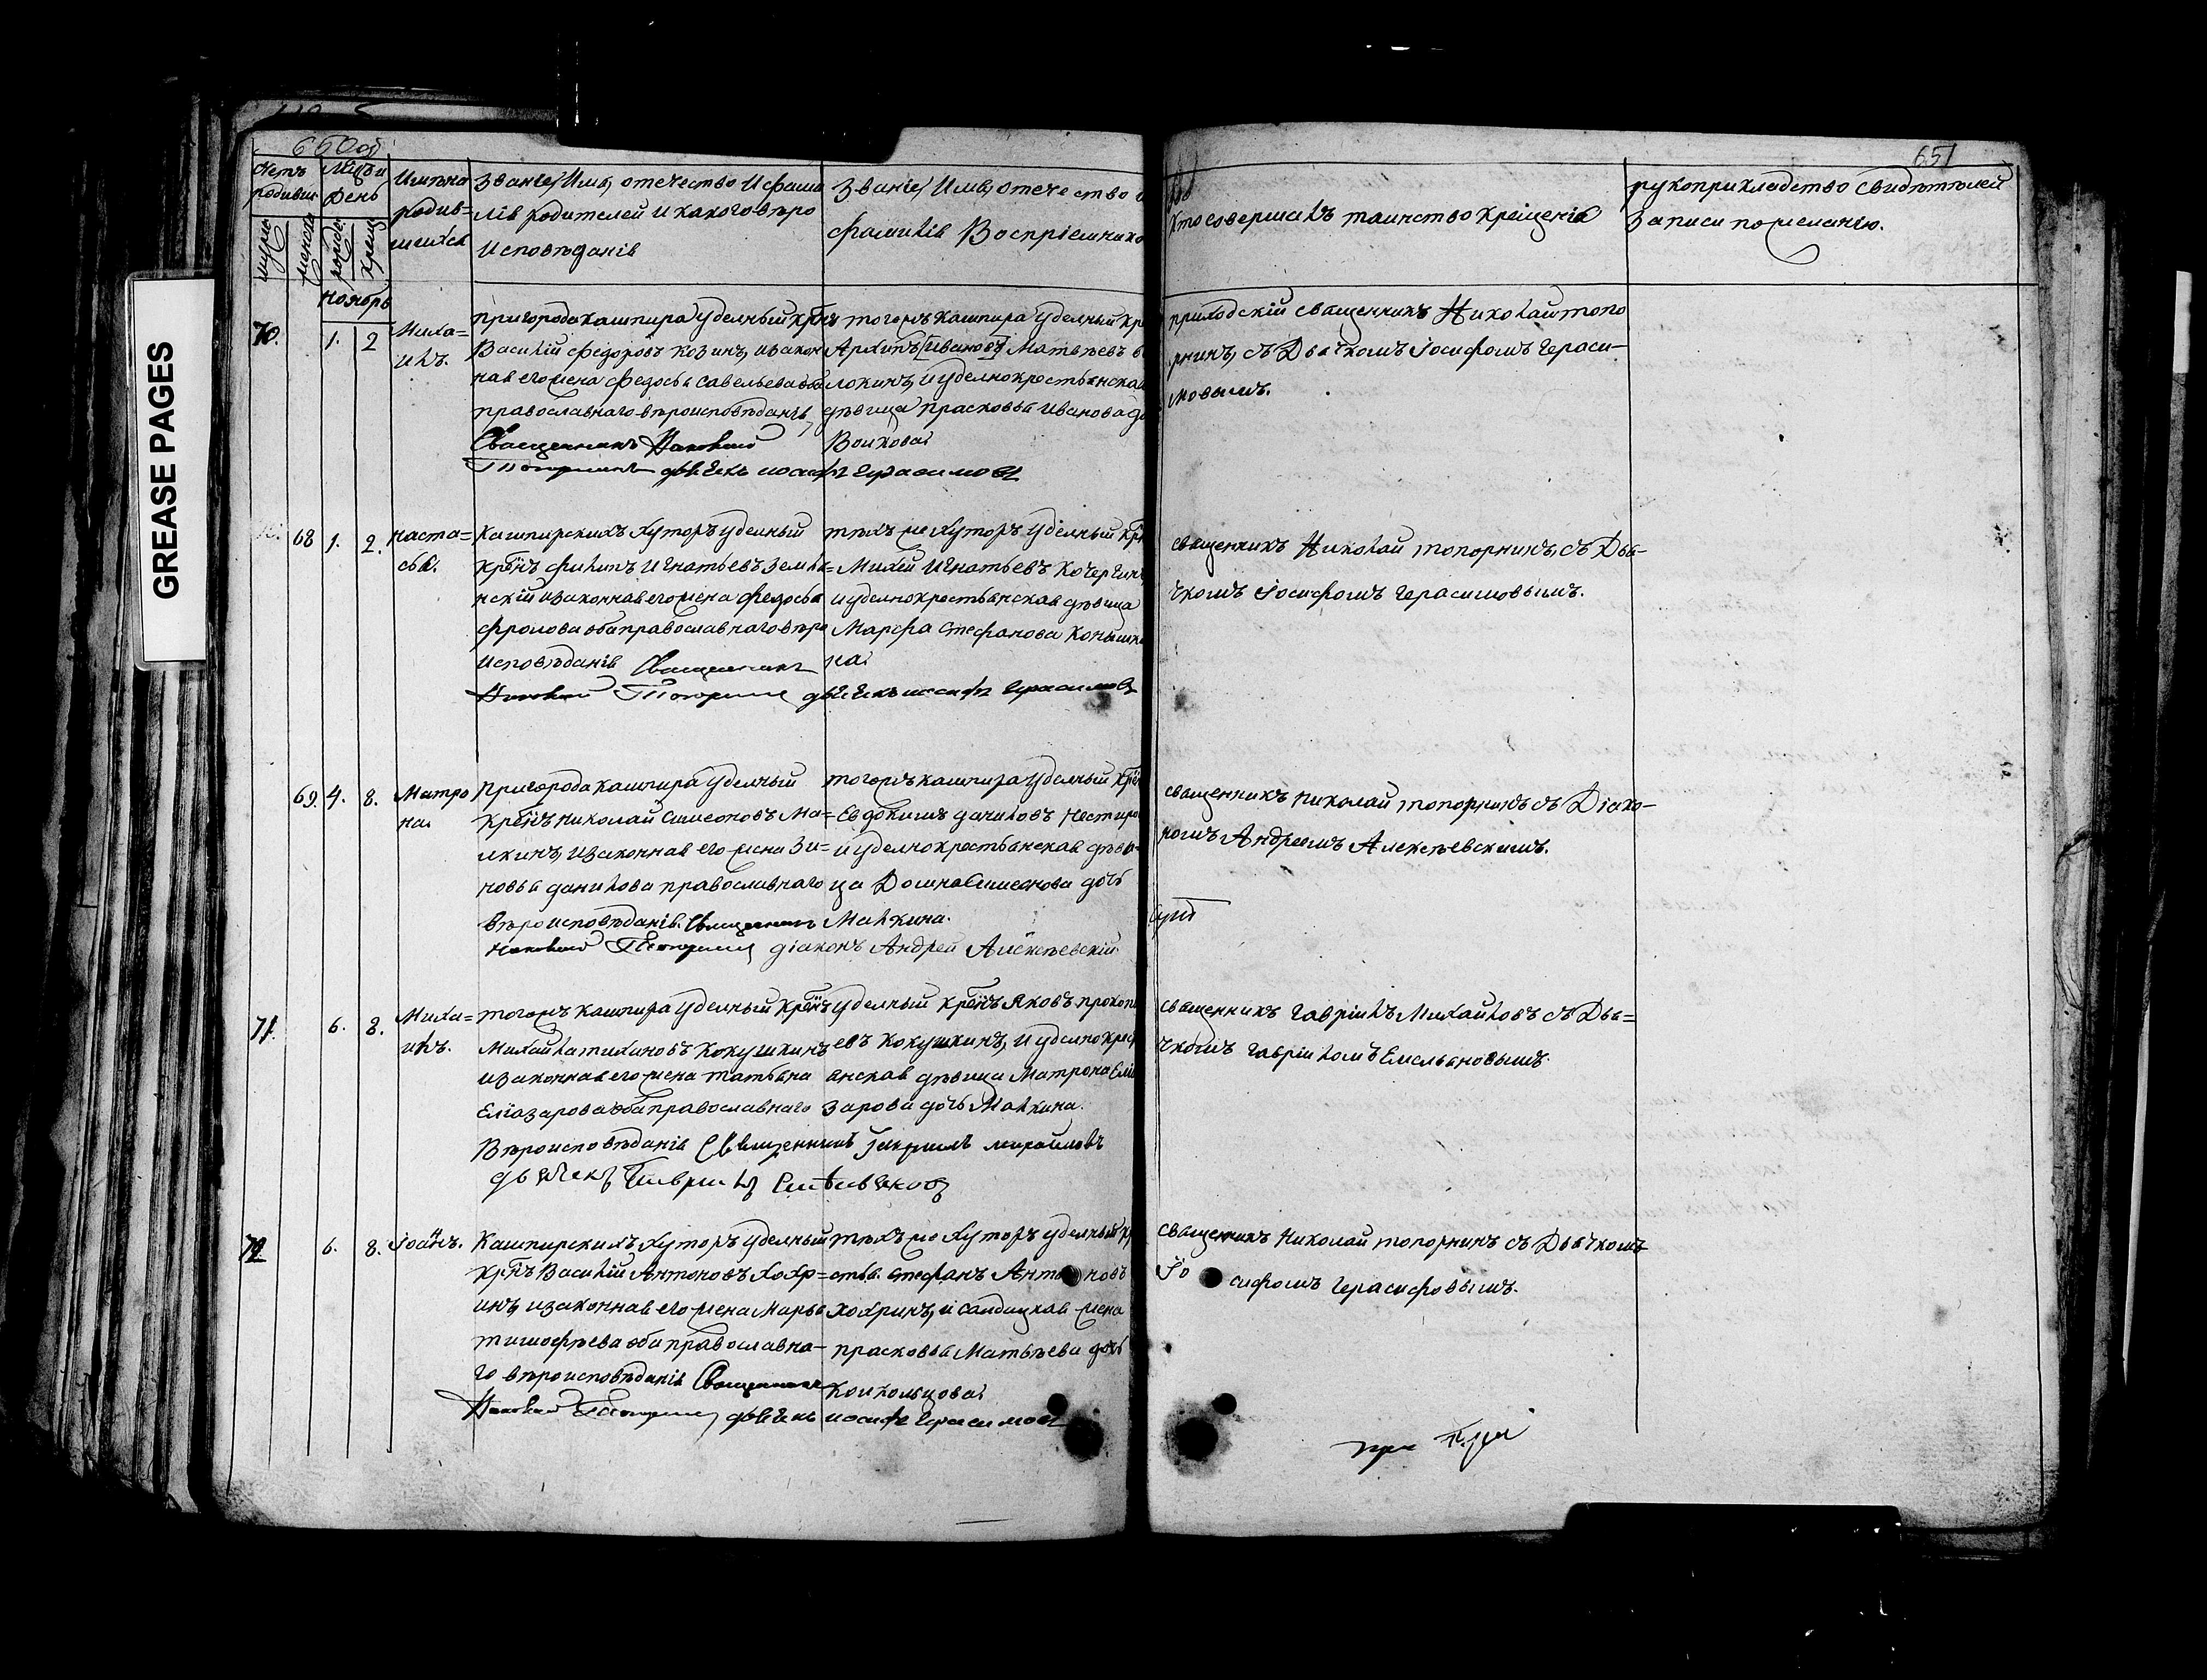 GREASE PAGES
650об
651
Счетъ родивш
Мѣцъ и день
Имѣна родив=
шихся
Званіе, Имя, отечество и фами
лія родителей и какого вѣро
исповѣданія
Званіе, Имя, отечество и
фамилія Воспріемнико
Кто совершалъ таинство крещенія
рукоприкладство свидѣтѣлей
записи по желанію.
ноябрь
70.
1. 2
Миха=
илъ.
пригорода кашпира уделный крнъ
Василій федоровъ козинъ, и закон
ная его жена федосья савельева оба
православнаго вѣроисповѣданія,
Священникъ Николай
Топорнинъ дьячекъ иосифъ герасимовъ
тогожъ кашпира уделный кр
Архипъ [Ивановъ] Матвѣевъ
локинъ, и уделнокрестьянская
дѣвица прасковья иванова до
Волкова
приходскій священникъ Николай топо
рнинъ, съ Дьячкомъ Іосифомъ Гераси-
мовымъ.
68 1. 2.
наста=
сья.
кашпирскихъ хуторъ уделный
крнъ филипъ игнатьевъ земля=
нскій и законная его жена федосья
фролова оба православнаго вѣро
исповѣданія Священникъ
Николай Топорнинъ дьячекъ иосифъ герасимовъ
тѣхъ же хуторъ уделный крн
Михей игнатьевъ кочергинъ
и уделнокрестьянская дѣвица
Марфа Стефанова Коньшки
на
священникъ Николай топорнинъ, съ Дья-
чкомъ Іосифомъ герасимовымъ.
69. 4. 8.
Матро
на
Пригорода кашпира уделный
крнъ николай симеоновъ Ма=
лкинъ, и законная его жена Зи=
новья данилова православнаго
вѣроисповѣданія. Священникъ
Николай Топорнинъ діаконъ Андрей Алексѣевскій.
тогожъ кашпира уделный крн
Евдокимъ даниловъ Нестиро
и уделнокрестьянская дѣви-
ца Домна Симеонова дочь
Малкина.
священникъ николай топорнинъ съ Діако-
номъ Андреемъ Алексѣевскимъ.
71. 6. 8.
Миха=
илъ.
тогожъ кашпира уделный крнъ
Михайла тихановъ Кокушкинъ
и законная его жена татьяна
Еліазарова оба православнаго
Вѣроисповѣданія Священникъ Гавріилъ михайловъ
уделный крнъ Яковъ прокопь
евъ кокушкинъ, и уделнокрест
янская дѣвица Матрона Елиа
зарова дочь Малкина.
священникъ гавріилъ Михайловъ съ Дья=
чкомъ гавріиломъ Емельяновымъ.
72 6. 8.
Іоаннъ.
Кашпирскихъ хуторъ уделный
крнъ Василій Антоновъ хохр=
инъ, и законная его жена Марья
тимофѣева оба православна-
го вѣроисповѣданія Священникъ
Николай Топорнинъ, дьячекъ иосифъ герасимовъ
тѣхъ же хуторъ уделный кр
стья. Стефанъ Антоновъ
хохринъ, и салдацкая жена
прасковья Матвѣева дочь
Колкольцова
священникъ Николай топорнинъ съ Дьячкомъ
Іосифомъ герасифовымъ.